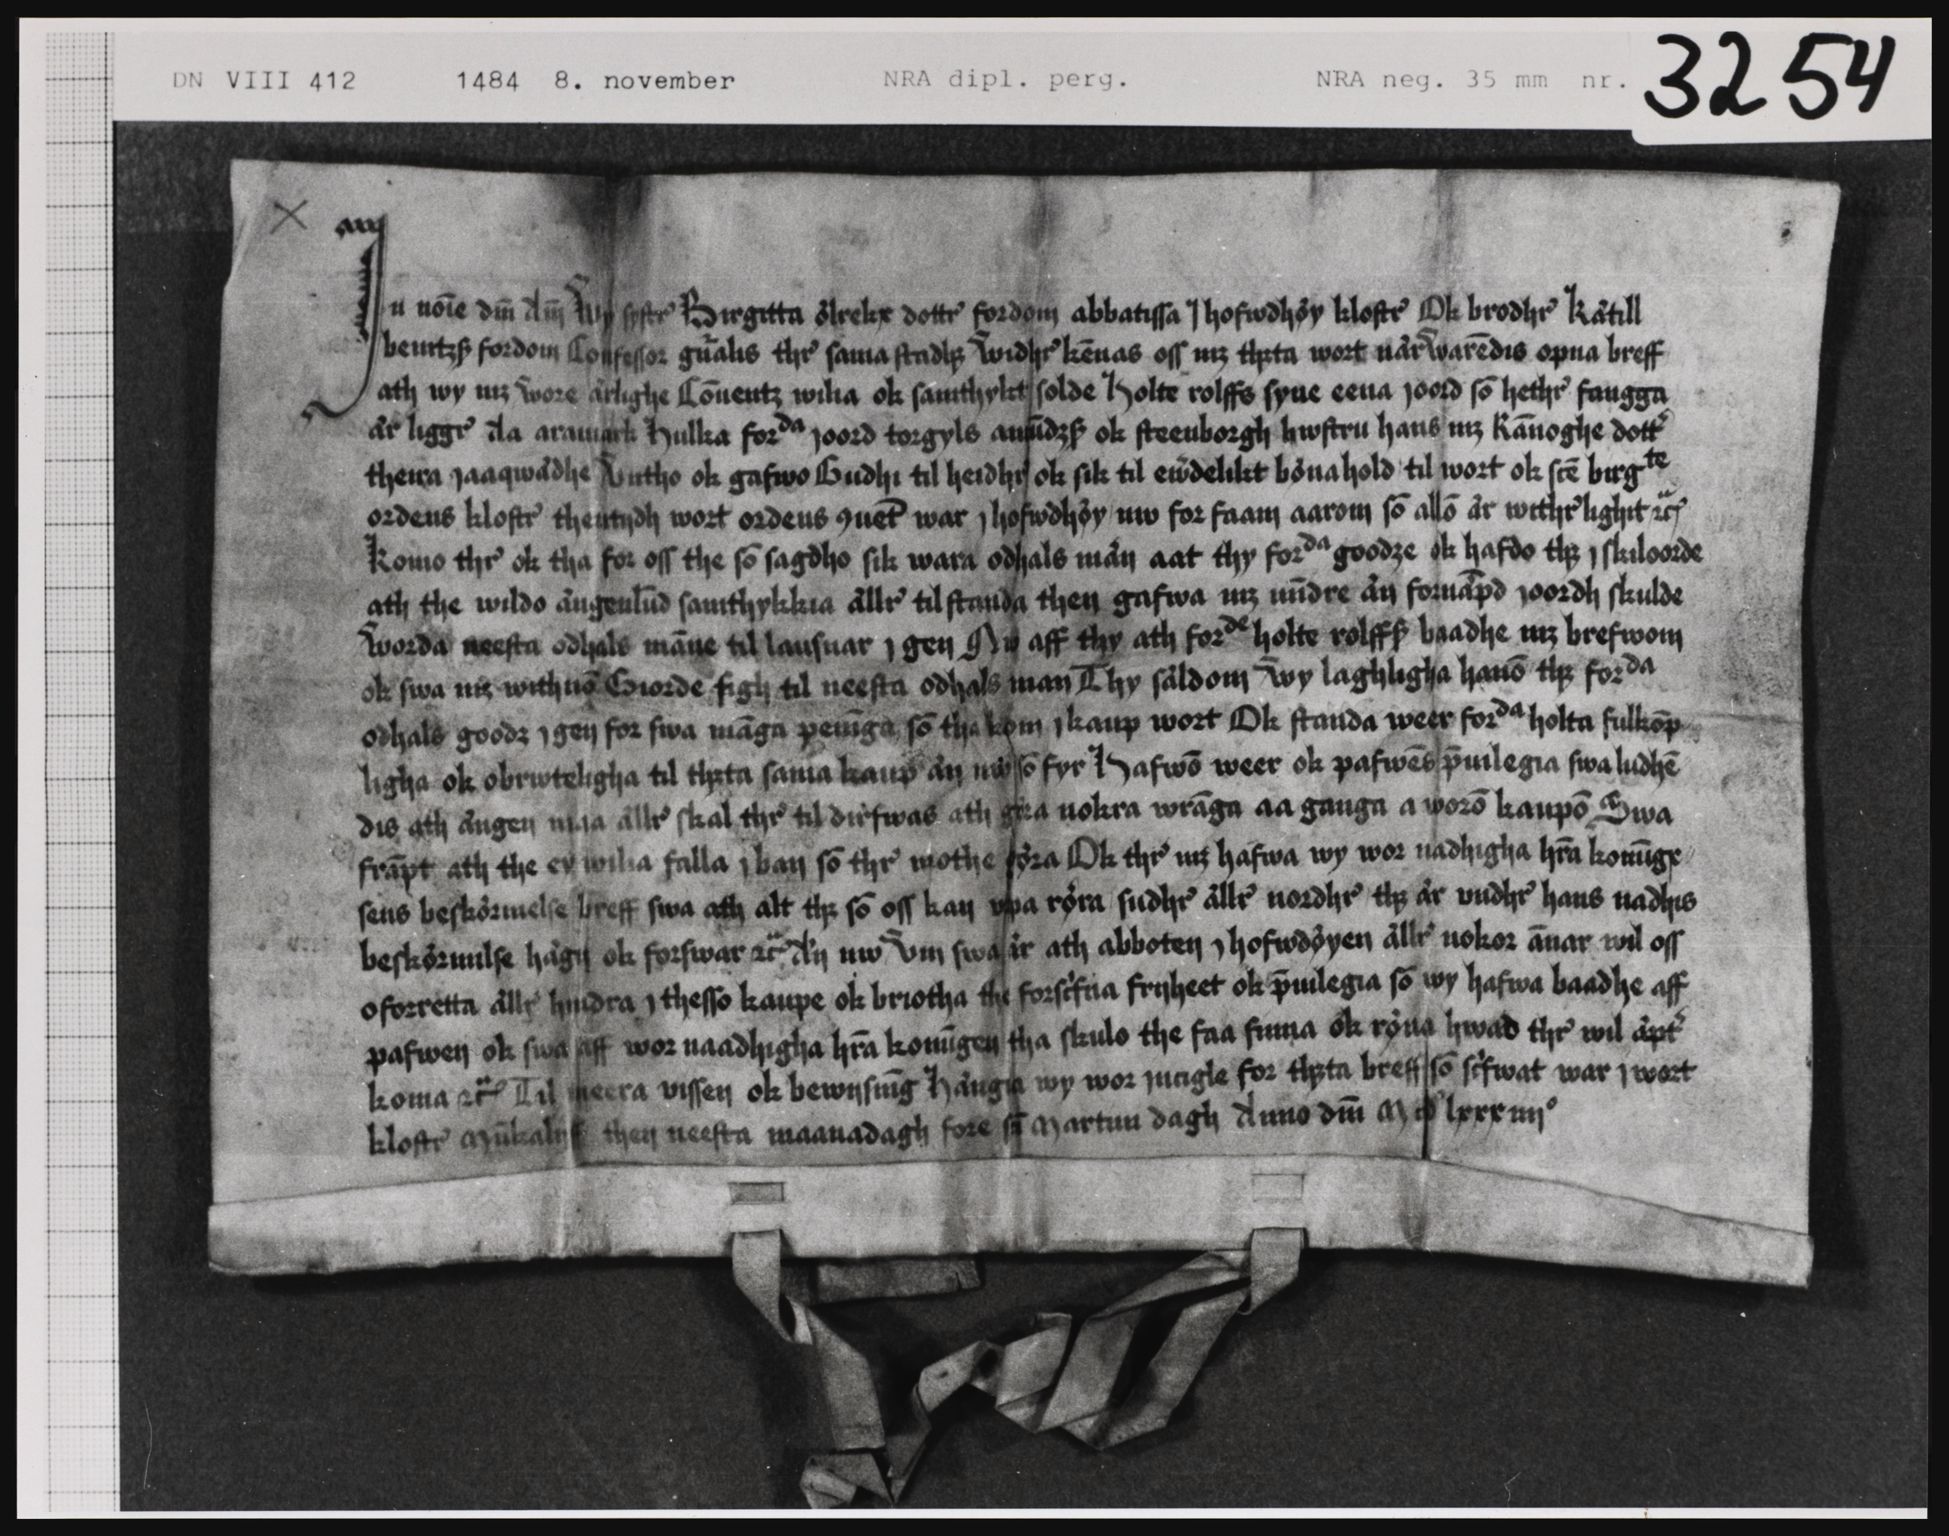 DN VIII 412 1484 8. november NRA dipl. perg. NRA neg. 35 mm nr. 3254
In no͞ie dni͞ Am͞ Wy systr̉ Birgitta ølrekx dottr̉ fordom abbatissa J hofwdhøy klostr̉ Ok brodhr̉ Kætill
bentzß fordom Confessor gn͞alis thr̉ sama stadhꝫ Widhr̉ ke͞nas oss mꝫ thꝫta wort nærware͞dis opna breff
ath wy mꝫ wore ærlighe Co͞uentꝫ wilia ok samthykt solde Holte rolffs syne eena joord so͞ hethr̉ faugga
ær liggr̉ Aa aramark Hulka forda joord torgyls amu͞dzß ok steenborgh hwstru hans mꝫ Ka͞noghe dottr̉
theira jaaqwædhe Vntho ok gafwo Gudhi til heidhr̉ ok sik til ewærdelikt bønahold til wort ok sc͞e birgte
ordens klostr̉ thentydh wort ordens ꝯuent war j hofwdhøy nw for faam aarom so͞ allo͞ ær withr̉lighit ꝛc̈
Komo thr̉ ok tha for oss the so͞ sagdho sik wara odhals mæn aat thy forda goodze ok hafdo thꝫ j skiloorde
ath the wildo ængenlu͞d samthykkia ællr̉ tilstanda then gafwa mꝫ mi͞dre æn forna͞pd joordh skulde
Worda neesta odhals ma͞ne til lausnar j gen Nw aff thy ath forde holte rolffß baadhe mꝫ brefwom
ok swa mꝫ withno͞ Giorde sigh til neesta odhals man Thy sældom Wy laghligha hano͞ thꝫ forda
odhals goodz j gen for swa ma͞ga peni͞ga so͞ tha kom j kaup wort Ok standa weer forda holta fulko͞p
ligha ok obrwteligha til thꝫta sama kaup æn nw so͞ fyr Hafwo͞ weer ok pafwe͞s p͞uilegia swa ludhe͞
dis ath ængen ma͞ ællr̉ skal thr̉ til dirfwas ath gøra nokra wra͞ga aa ganga a woro͞ kaupo͞ Swa
fra͞pt ath the ey wilia falla j ban so͞ thr̉ mothe gøra Ok thr̉ mꝫ hafwa wy wor nadhigha hr̉a koni͞gx
sens beskørmelse breff swa ath alt thꝫ so͞ oss kan vpa røra sudhr̉ ællr̉ nordhr̉ thꝫ ær vndhr̉ hans nadhis
beskørmilse hægn ok forswar ꝛc̈ Æn nw Vm swa ær ath abboten j hofwdøyen ællr̉ nokor a͞nar wil oss
oforretta ællr̉ hindra j thesso kaupe ok briotha the forscr̉fna friiheet ok p͞uilegia so͞ wy hafwa baadhe aff
pafwen ok swa aff wor naadhigha hr̉a koni͞gen tha skulo the faa finna ok røna hwad thr̉ wil æptr̉
koma ꝛc̈ Til meera vissen ok bewiisni͞g Hængia wy wor incigle for thꝫta breff so͞ scr̉fwat war j wort
klostr̉ Mu͞kaliff then neesta maanadagh fore sc͞i Martini dagh Anno dni͞ Mcdlxxxiiij°